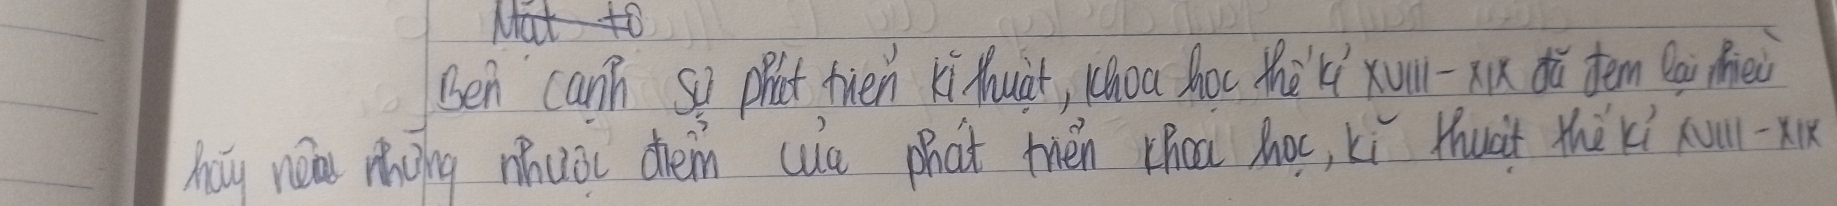 Mặt tố
Bên cạnh sự phát triển kĩ thuật, khoa học thế kỉ XVIII - XIX đã đem lại nhiều
hãy nêu những nhược điểm của phát triển khoa học, kĩ thuật thế kỉ XVIII - XIX